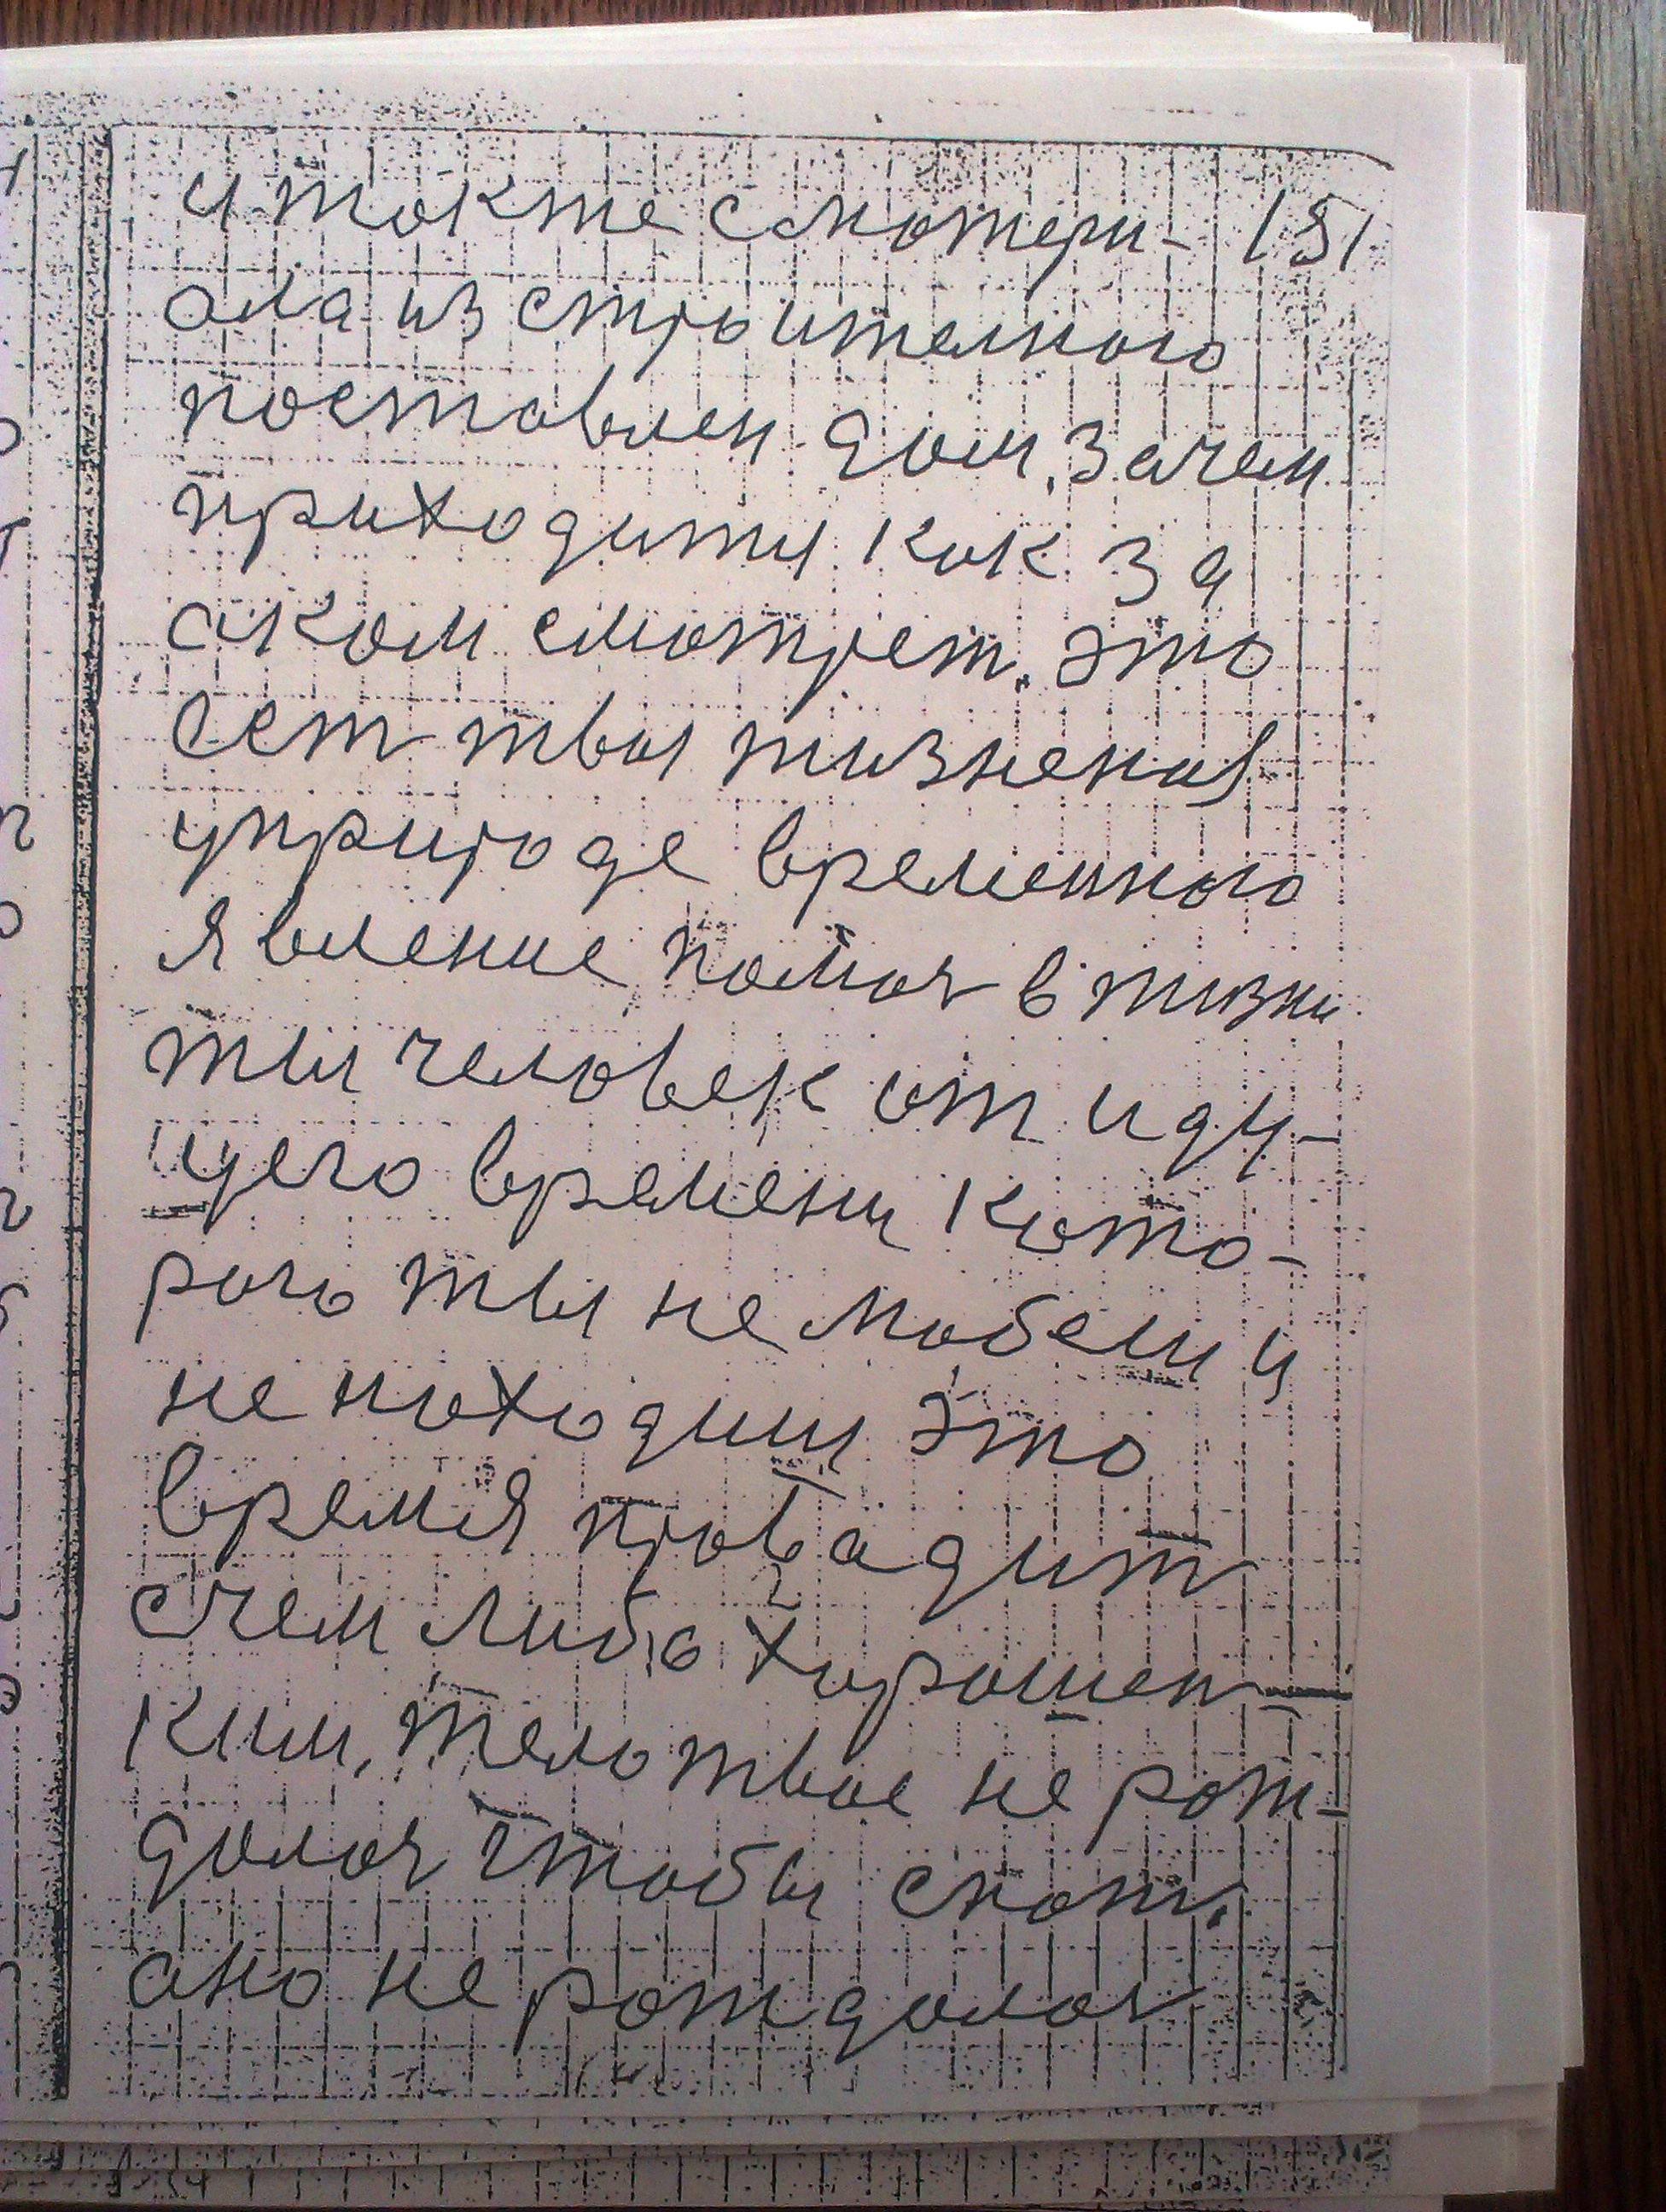 и также с матери- 151
ала из строителного
поставлен дом, зачем
приходити как за
аком смотрет. это
сет твоя жизненоя
уприроде временного
явление помоч в жизни
ты человек от иду-
щего времени кото-
рого ты не любеш и
не находиш это
время провадит
счем либо хорошен-
ким, тело твое не рож-
далоч чтобы спат.
ано не рождалоч